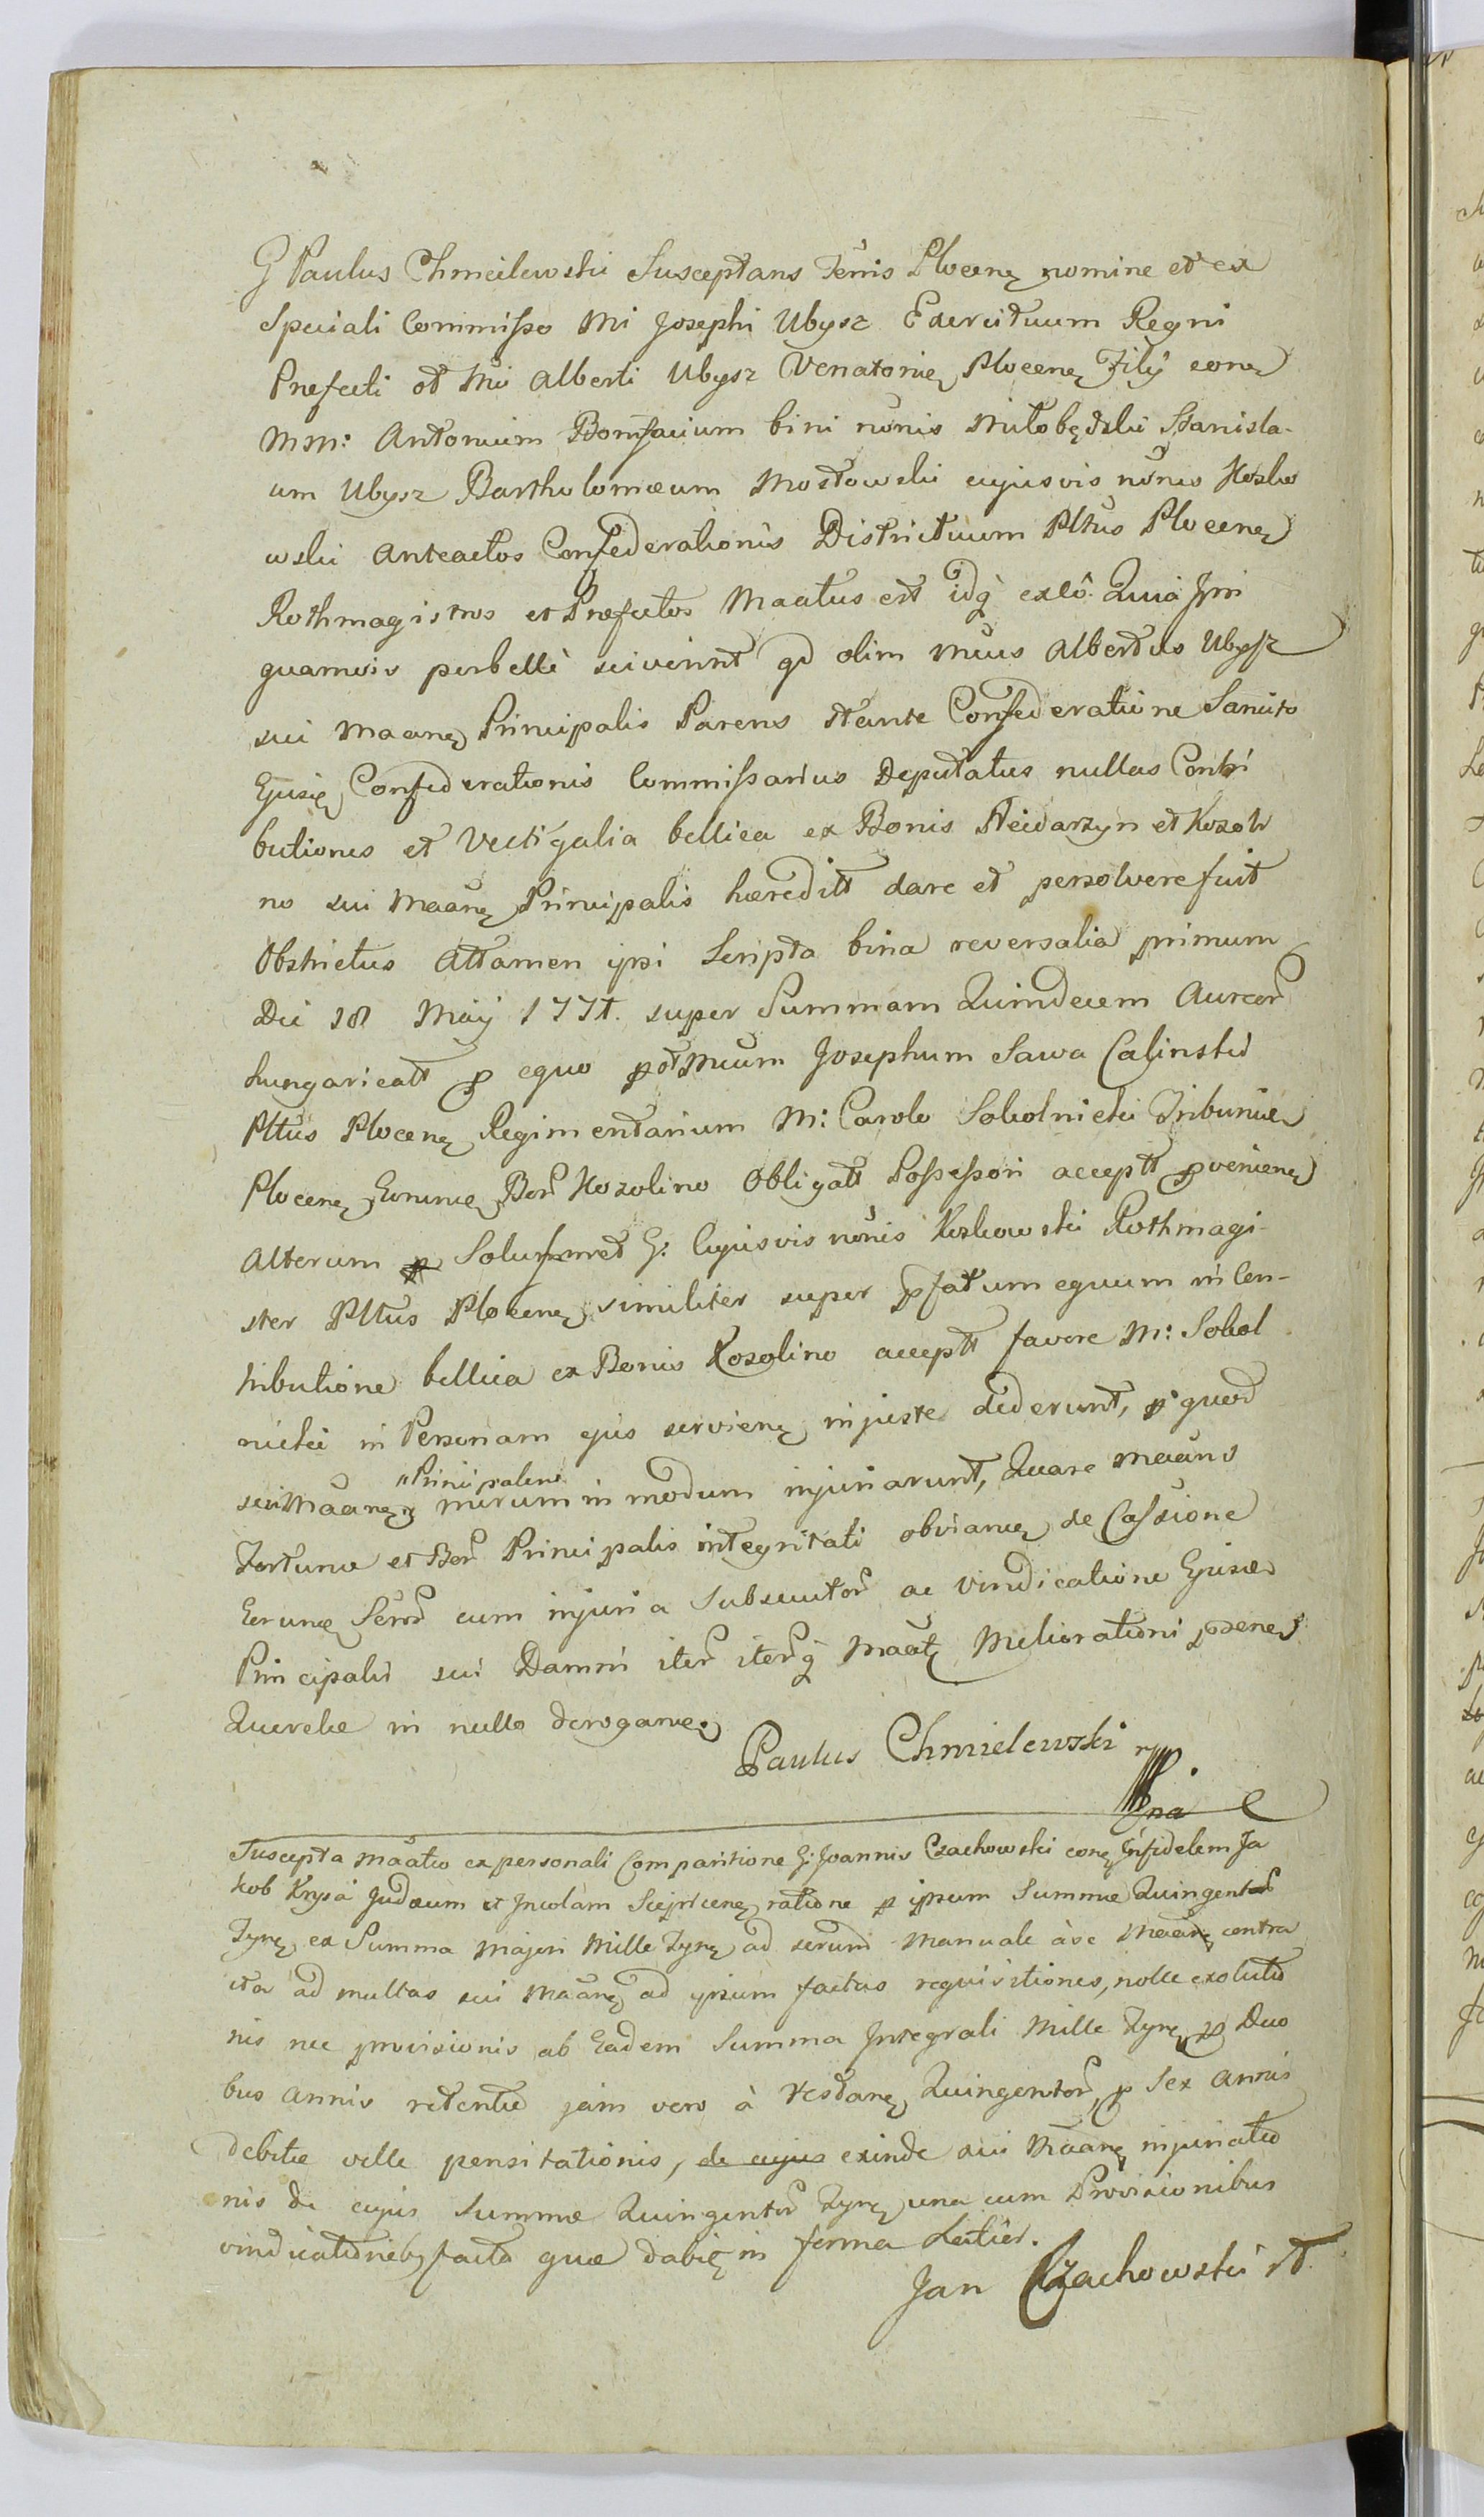 G Paulus Chmielewski Susceptans Terris Plocenę nomine et ex
Speciali Commisso Mi Josephi Ubysz Exercituum Regni
Præfecti ot Mi Alberti Ubysz Venatoris Plocenę Filÿ conę
MM: Antonium Bonifacium bini nōnis Miłobędzki Stanisla-
um Ubysz Bartholomæum Mostowski cujusvis nōnis Kozko
wski Anteactos Confederationis Districtuum Pltûs Plocenę
Rothmagistros et Præfectos Maatus est idq̀ exeô. Quia Jpsi
quamvis perbellè sciverint qd olim Mcus Albertus Ubysz
sui Maanę Principalis Parens stante Confederatione Sancito
Ejusdę Confederationis Commissarius Deputatus nullas Contri
butiones et Vectigalia bellica ex Bonis Niedarzyn et Kozoli
no sui Maanę Principalis hæreditt dare et persolvere fuit
Obstrictus Attamen ipsi Scripta bina reversalia primum
Die 18 Maÿ 1771. super Summam Quindecem Aureor
hungaricatt p equo pt Mcum Josephum Sawa Calinski
Pltûs Plocenę Regimentarium M: Carolo Sokolnicki Tribunidę
Plocenę Eorumdę Bor Kozolino Obligatt Possessori acceptt pvenienę
Alterum p Solummet G: Cujusvis nōnis Kozkowski Rothmagi-
ster Pltûs Plocenę similiter super pfatum equum in Con-
tributione bellica ex Bonis Kozolino acceptt favore M: Sokol
nicki in Personam ejus servienę injuste dederunt, p quod
sui Maanę "Principalem mirum in modum injuriarunt, Quare maans
Fortunæ et Bor Principalis integritati obviandę de Cassione
Eorundę Scror cum injuria Subsecutor ac vindicatione Ejusdę
Principalis sui Damni iter iterq̀ Maatę Meliorationi psenę
Querelæ in nullo derogandę
Paulus Chmielewski mp.
Suscepta maatio ex personali Comparitione G. Joannis Czachowski conę Jnfidelem Ja
kob Krysa Judæum et Jncolam Sierpcenę ratione p ipsum Summæ Quingentor
Fłynę ex Summa majori Mille Fłynę ad scrum manuale àse Maanę contra
cta ad multas sui Maanę ad ipsum factas requisitiones, nolle exolutio
nis nec provisionis ab Eadem Summa Jntegrali Mille Fłynę p Duo
bus Annis retentæ jam vero à restanę Quingentor, p Sex Annis
debitæ velle pensitationis, de cujus exinde sui Maanę injuriatio
nis de cujus Summæ Quingentor Fłynę una cum Provisionibus
vindicationeb facta quæ dabię in forma Latior.
Jan Czachowski